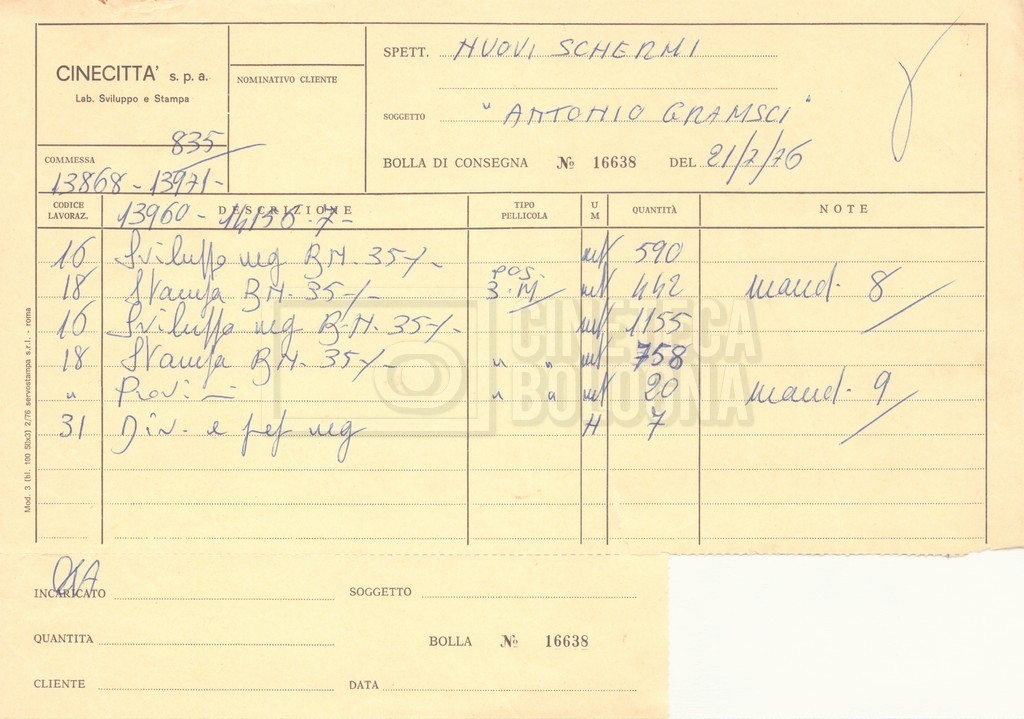 CINECITTA' s. p. a.
Lab. Sviluppo e Stampa
835
COMMESSA
13868 - 13971 -
13960 - 14156.7 -
NOMINATIVO CLIENTE
SPETT. NUOVI SCHERMI
SOGGETTO "ANTONIO GRAMSCI"
BOLLA DI CONSEGNA № 16638 DEL 21/7/76
CODICE LAVORAZ. DESCRIZIONE TIPO PELLICOLA U M QUANTITÀ NOTE
16 Sviluppo neg B.N. 35-/- mt 590
18 Stampa B.N. 35-/- POS. 3.M mt 442 mand. 8
16 Sviluppo neg B.N. 35-/- mt 1155
18 Stampa B.N. 35-/- " " mt 758
" Provi - " " mt 20 mand. 9
31 Div. e neg H 7
Mod. 3 (bl. 100 50x3) 2/76 servostampa s.r.l. - roma
CINETECA
BOLOGNA
INCARICATO
SOGGETTO
QUANTITA
BOLLA № 16638
CLIENTE
DATA